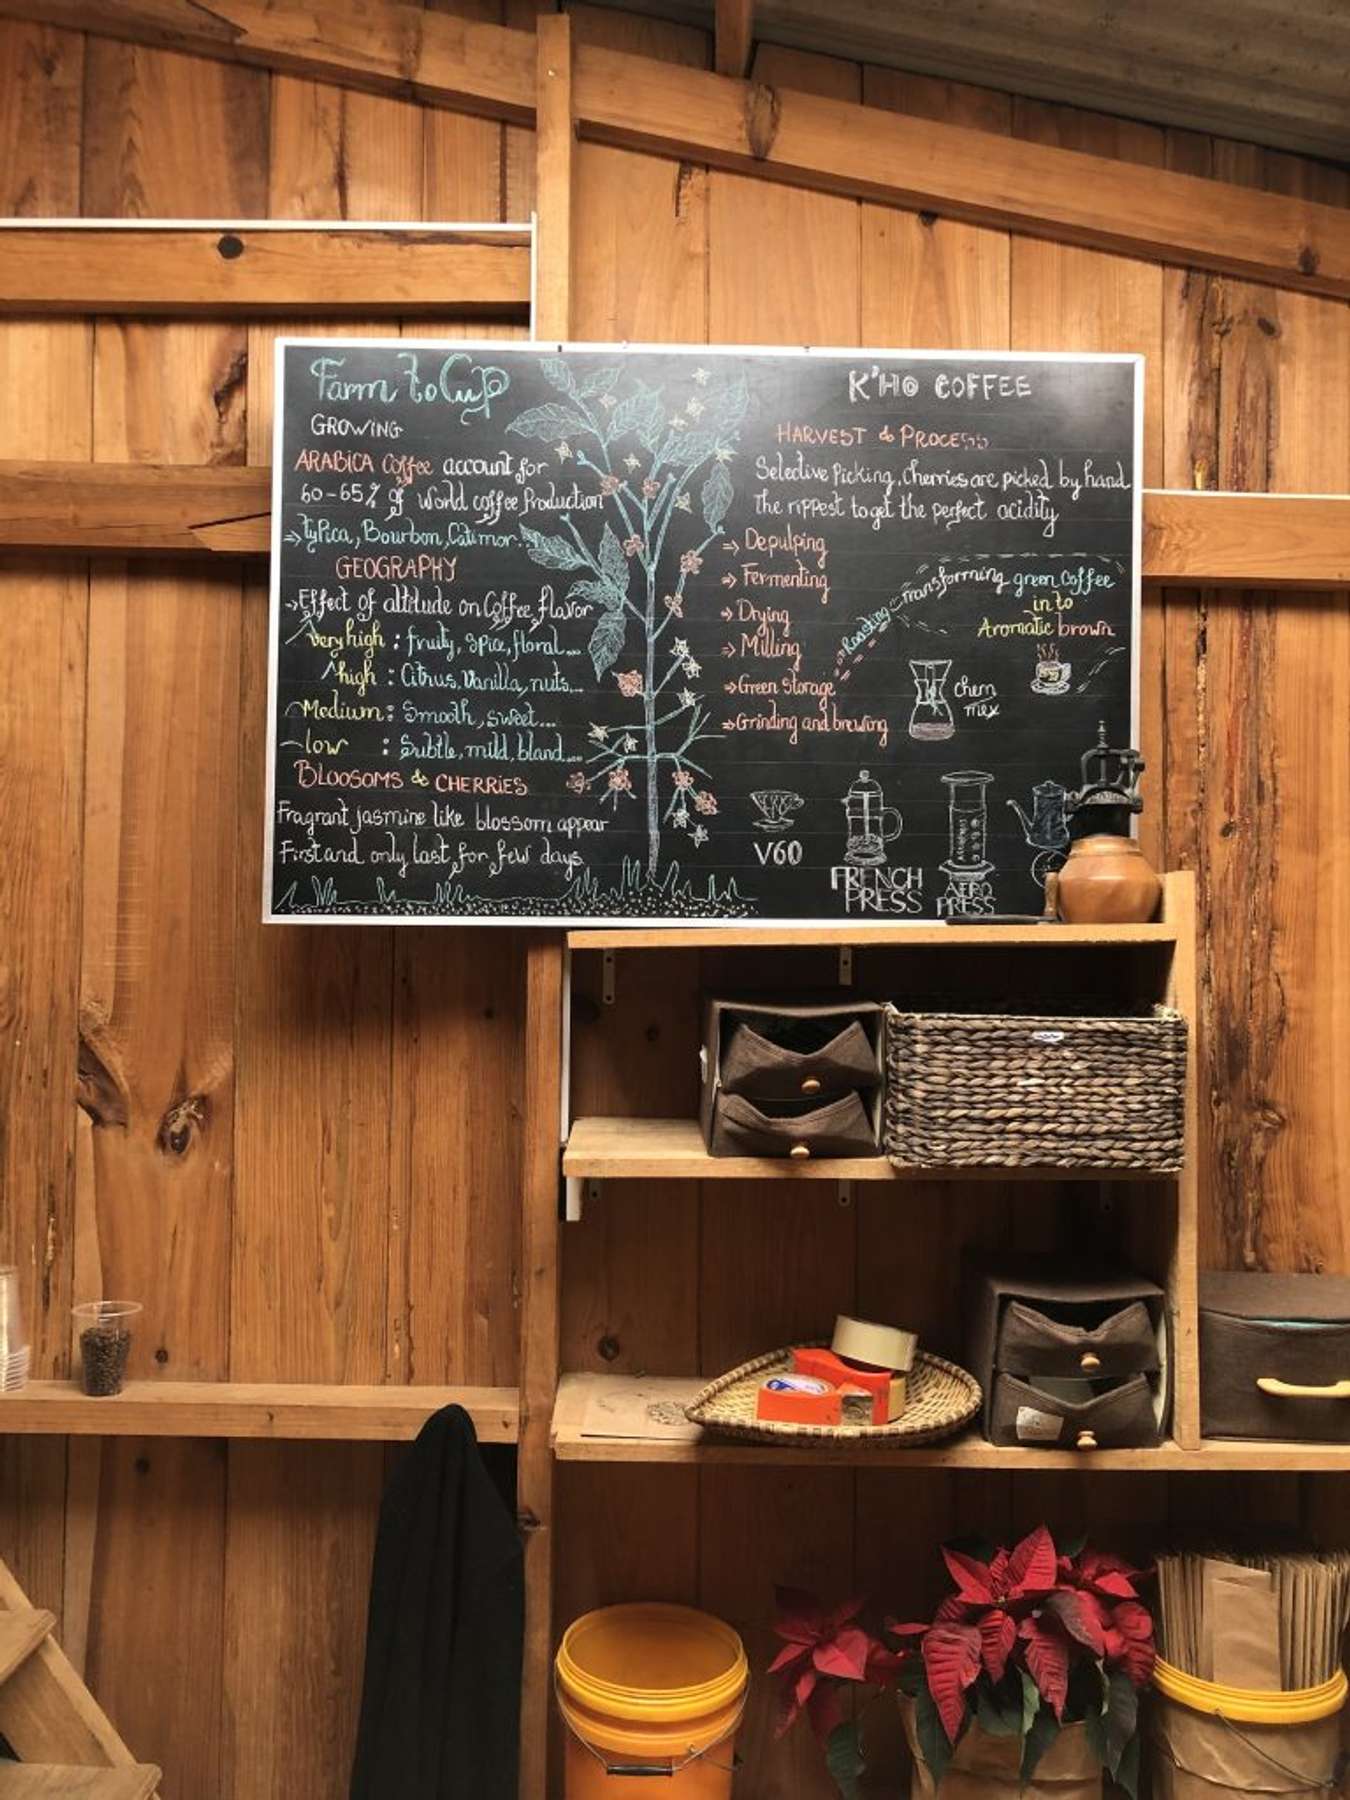 Farm to Cup
GROWING
ARABICA Coffee account for
60-65% of world coffee Production
=> typica, Bourbon, Catimor...
GEOGRAPHY
=> Effect of altitude on Coffee flavor
very high : fruity, spice, floral...
high : Citrus, vanilla, nuts...
Medium : Smooth, sweet...
low : Subtle, mild, bland...
BLOOSOMS & CHERRIES
Fragrant jasmine like blossom appear
First and only last for few days.
K'HO COFFEE
HARVEST & PROCESS
Selective Picking, Cherries are picked by hand
The rippest to get the perfect acidity
=> Depulping
=> Fermenting
=> Drying
=> Milling
=> Green Storage
=> Grinding and brewing
Roasting
Transforming green Coffee
into
Aromatic brown
chem
mex
V60
FRENCH
PRESS
AERO
PRESS